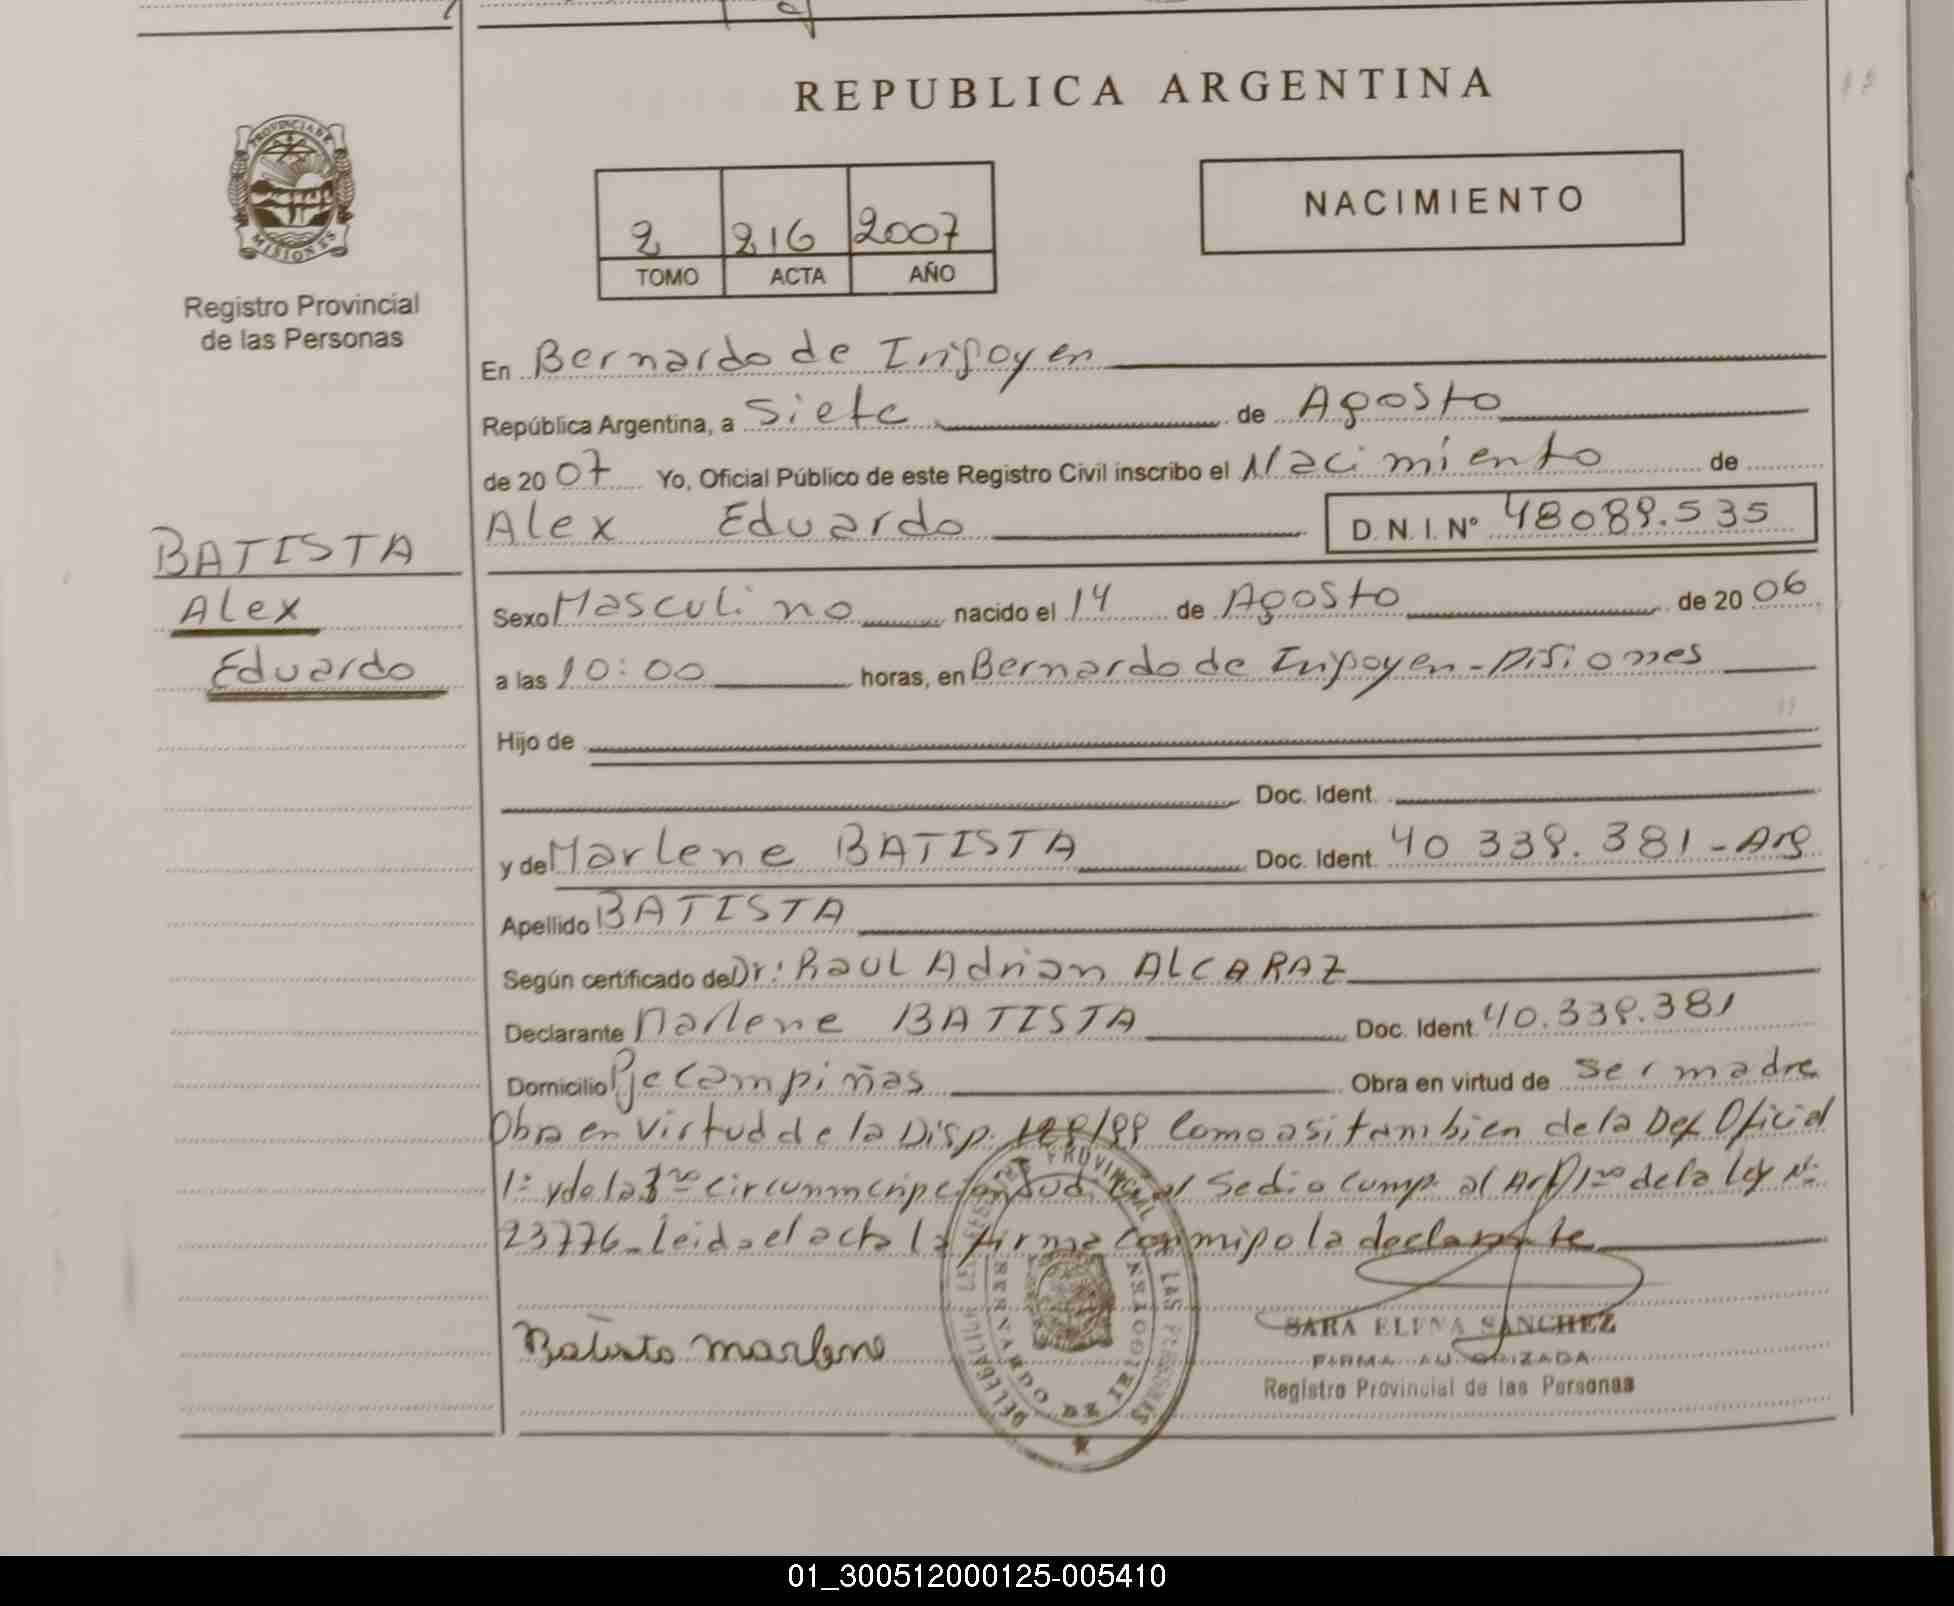 REPUBLICA ARGENTINA
PROVINCIA DE
MISIONES
Registro Provincial
de las Personas
2 216 2007
TOMO ACTA AÑO
NACIMIENTO
En Bernardo de Irigoyen
República Argentina, a Siete de Agosto
de 20 07 Yo, Oficial Público de este Registro Civil inscribo el Nacimiento de
Alex Eduardo D.N.I. Nº 48089.535
BATISTA
Alex
Eduardo
Sexo Masculino nacido el 14 de Agosto de 20 06
a las 10:00 horas, en Bernardo de Irigoyen - Misiones
Hijo de
Doc. Ident.
y de Marlene BATISTA Doc. Ident. 40 339.381 - Arg
Apellido BATISTA
Según certificado de Dr: Raul Adrian ALCARAZ
Declarante Marlene BATISTA Doc. Ident. 40.339.381
Domicilio Pje Campiñas Obra en virtud de ser madre
Obra en virtud de la Disp. /99 Como asi tambien de la Def Oficial
1º y de la 3ra circunmcripcion Judicial Se dio cump. al Art 1ro de la Ley Nº
23776_ Leida el acta la firma conmigo la declarante
Batista Marlene
DELEGACION REGISTRO PROVINCIAL DE LAS PERSONAS
BERNARDO DE IRIGOYEN
SARA ELENA SANCHEZ
FIRMA AUTORIZADA
Registro Provincial de las Personas
01_300512000125-005410